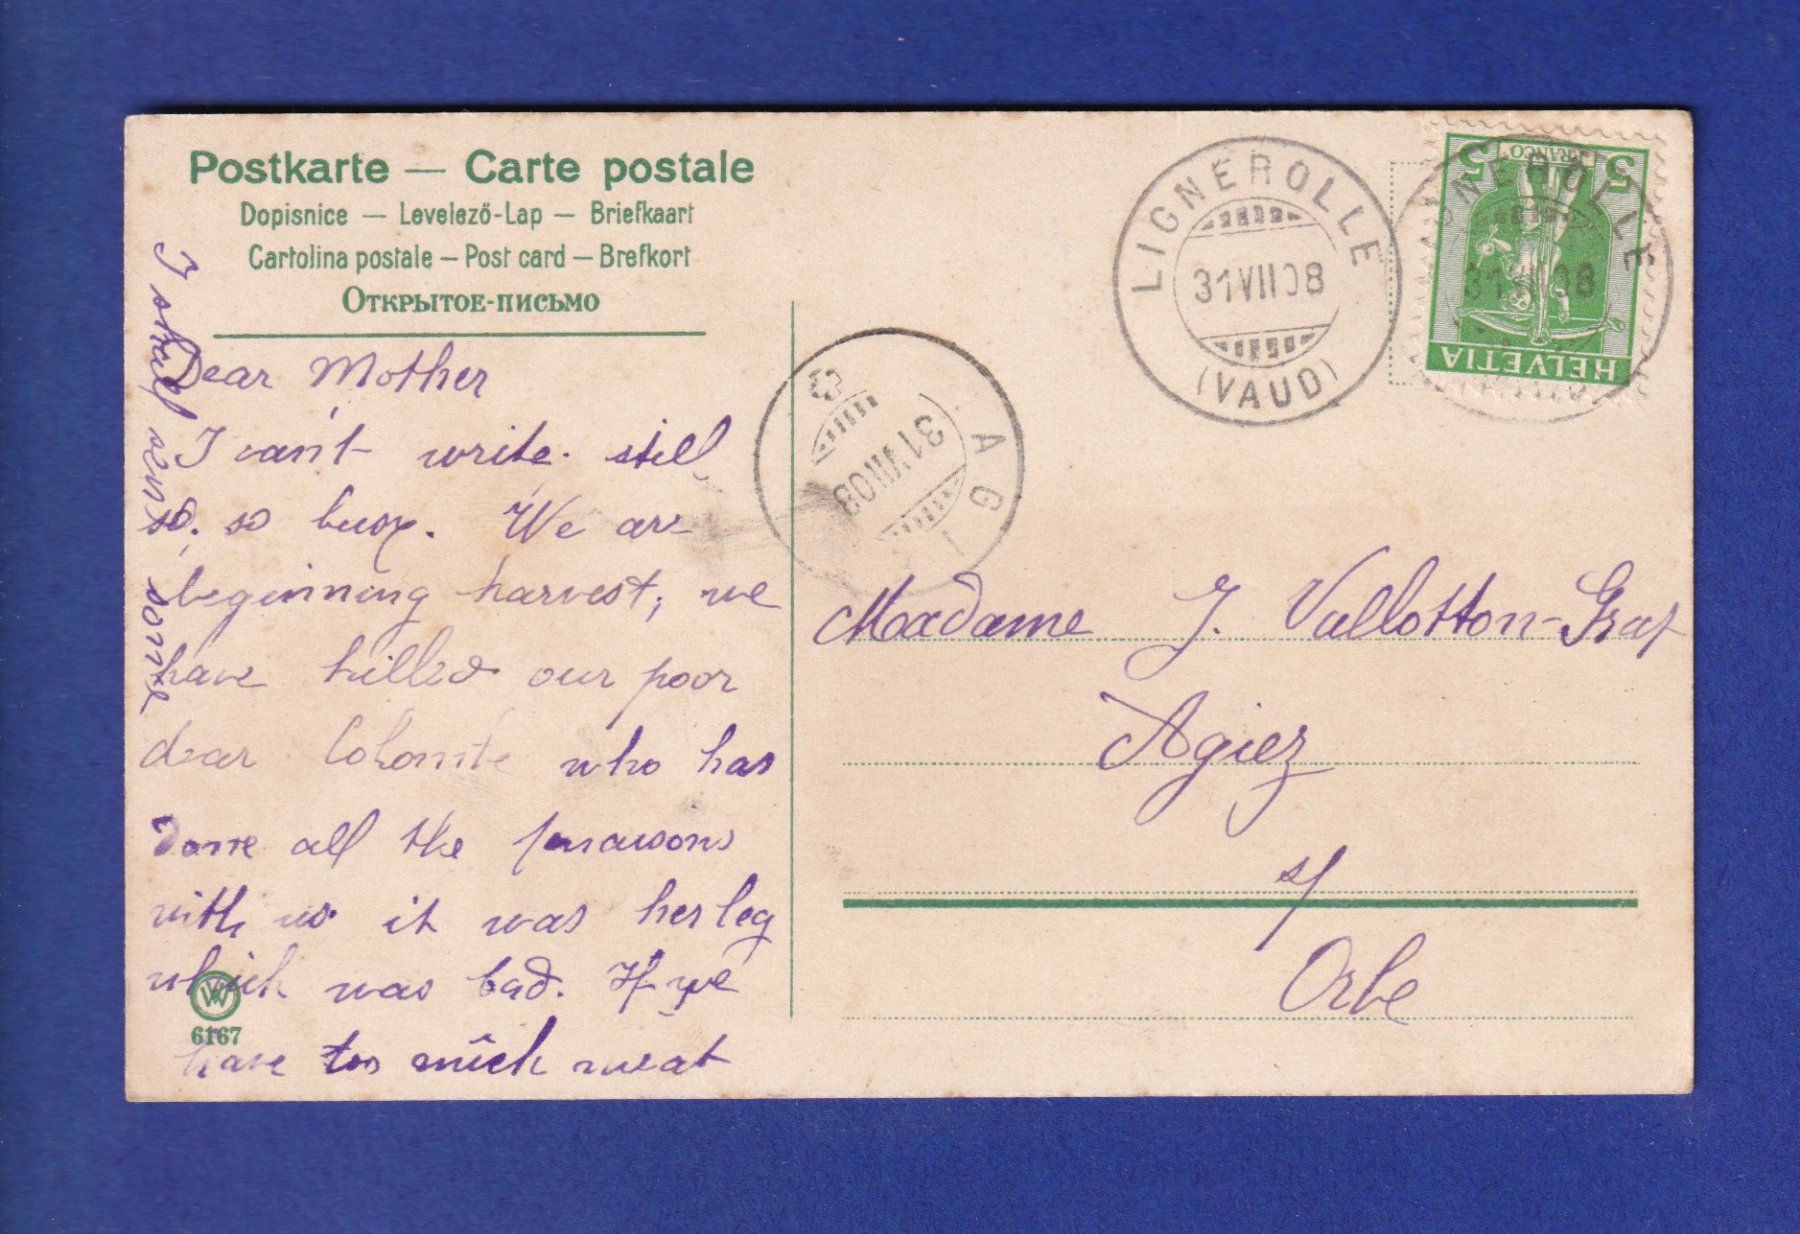 Postkarte — Carte postale
Dopisnice — Levelező-Lap — Briefkaart
Cartolina postale – Post card – Brefkort
Открытое-письмо
Dear Mother
I can't write still,
so, so busy. We are
beginning harvest; we
have killed our poor
dear who has
done all the
with us it was her leg
which was bad. If we
have too much meat
I shall send some
W W
6167
LIGNEROLLE
31 VII 08
(VAUD)
LIGNEROLLE
31 VII 08
5 FRANCO 5
HELVETIA
AGI
31 VII 08
Madame J. Vallotton-Graf
Agiez
s/
Orbe